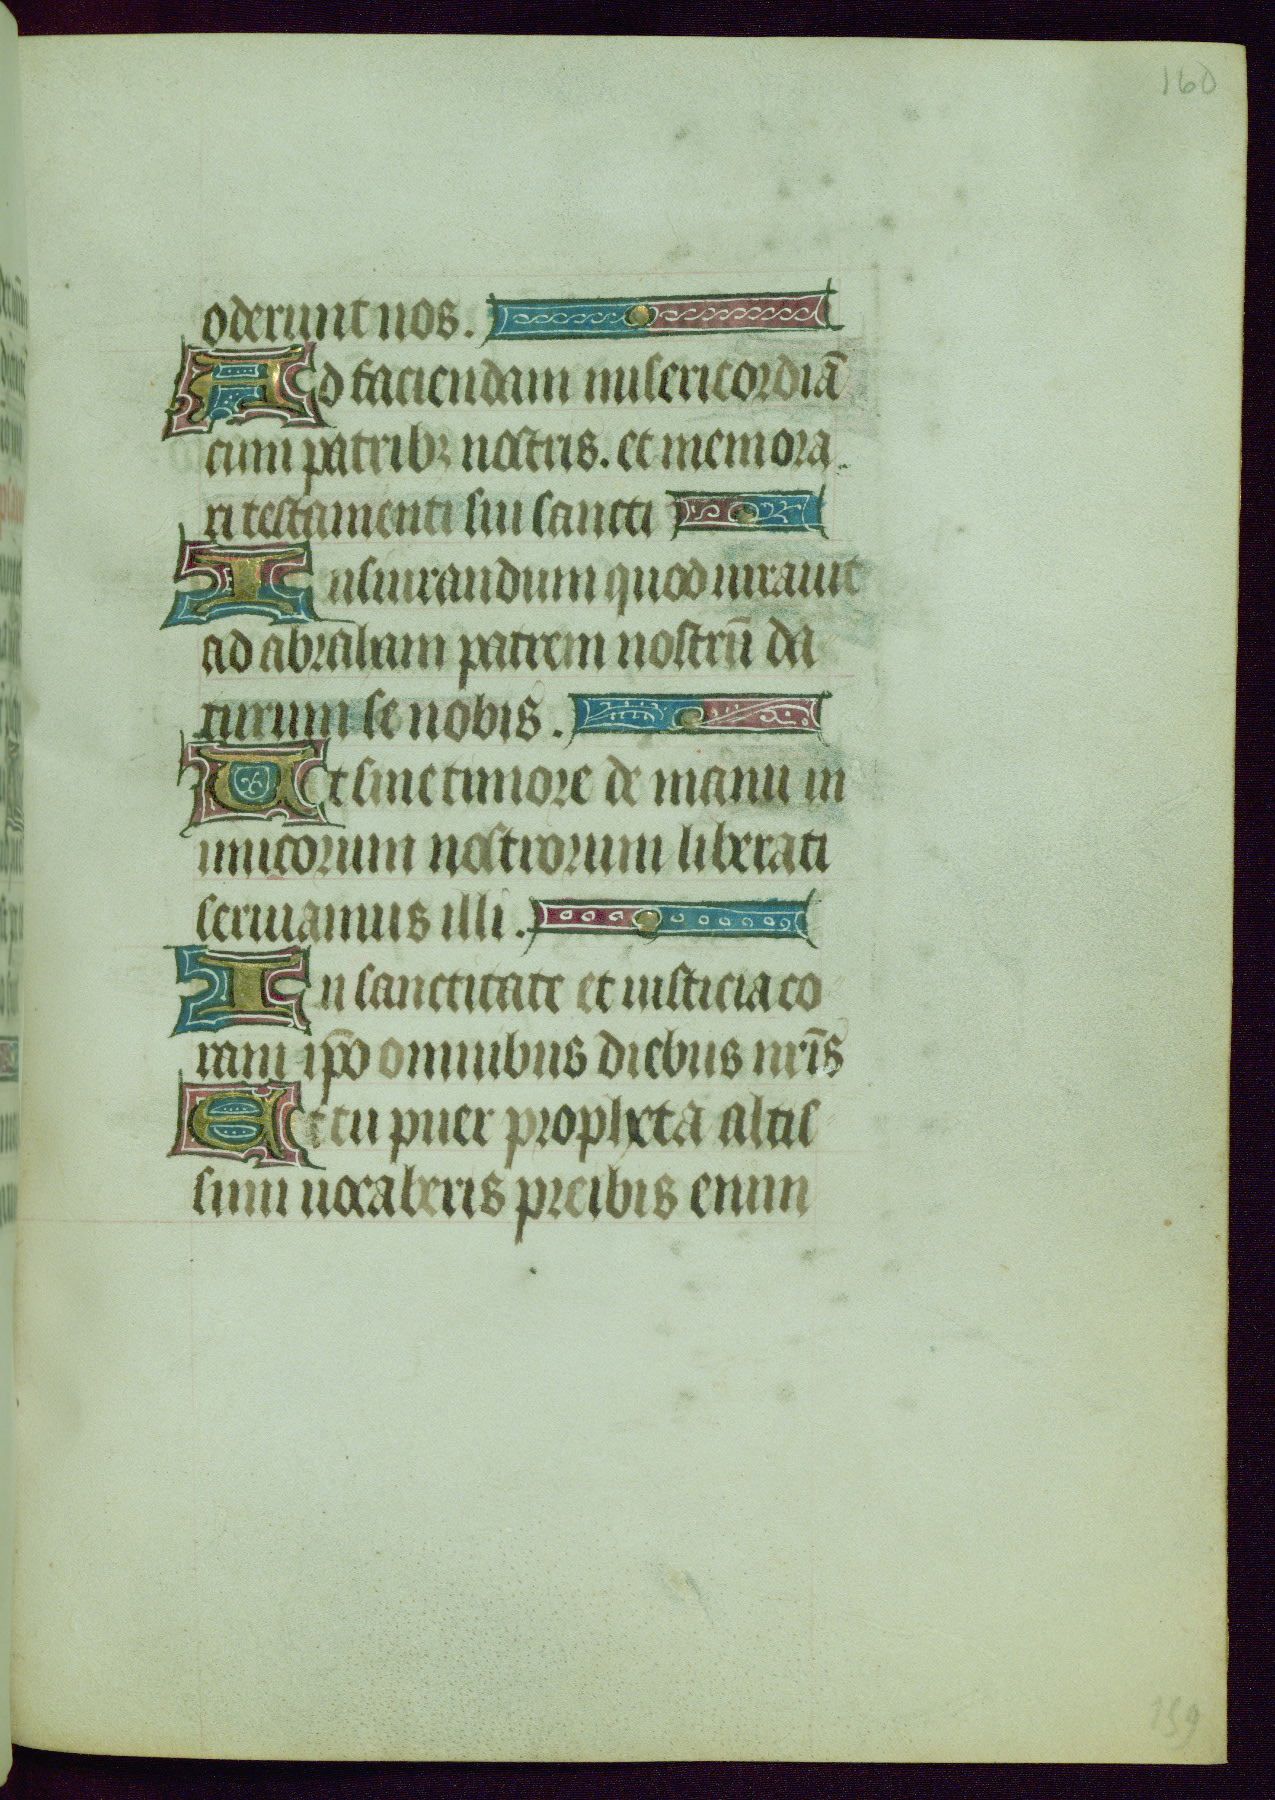 160
oderunt nos.
Ad faciendam misericordiā
cum patribꝫ nostris. et memora
ri testamenti sui sancti
Iusiurandum quod iurauit
ad abraham patrem nostrū da
turum se nobis.
Ut sine timore de manu in
imicorum nostrorum liberati
seruiamus illi.
In sanctitate et iusticia co
ram ip̄o omnibus diebus nr̄is
Et tu puer propheta altis
simi uocaberis preibis enim
159